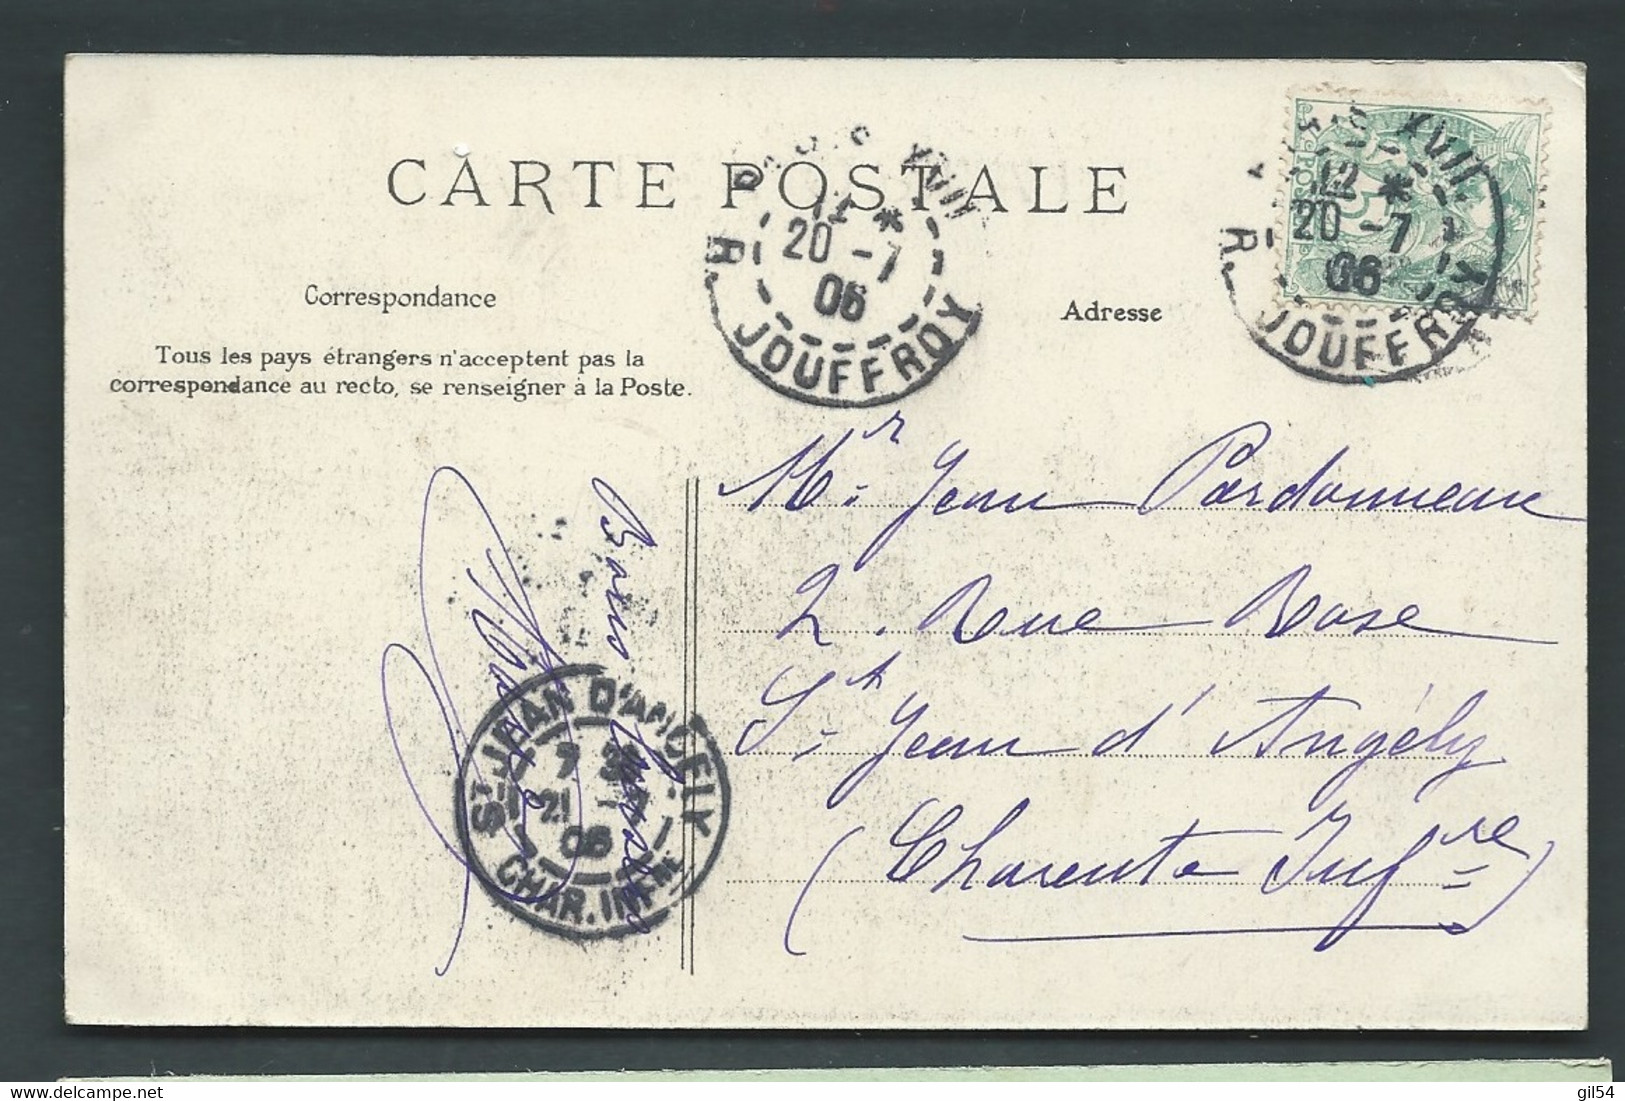 CARTE POSTALE
PARIS XVII
12 *
20 -7
06
R. JOUFFROY
PARIS XVII
12 *
20 -7
06
R. JOUFFROY
5
POSTE
Correspondance
Adresse
Tous les pays étrangers n'acceptent pas la
correspondance au recto, se renseigner à la Poste.
Bons
Mr. Jean Pardonneau
2. Rue Rose
St. Jean d'Angély
(Charente Infre)
ST JEAN D'ANGELY
7
21
06
CHAR. INFRE
gil54